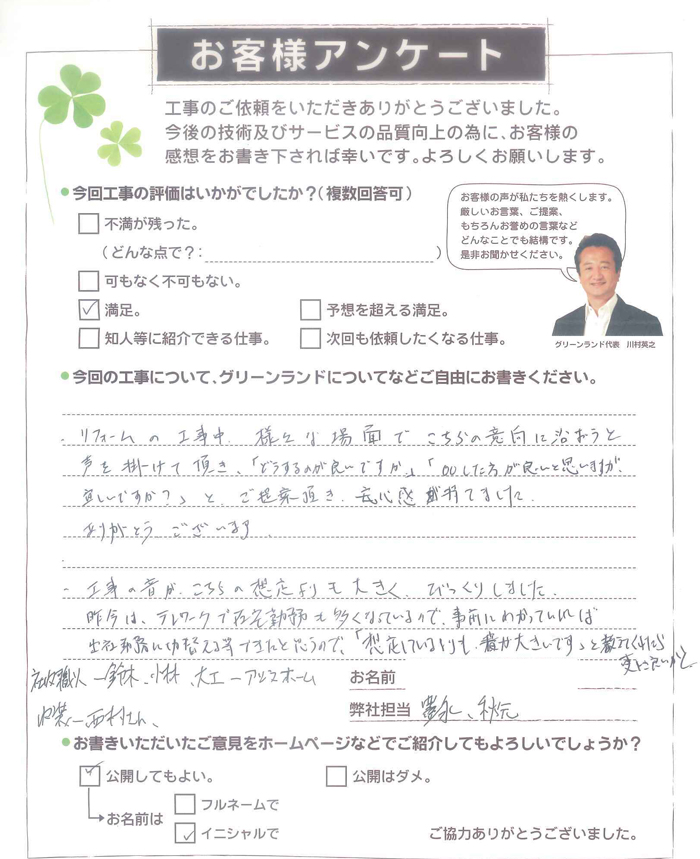 お客様アンケート
工事のご依頼をいただきありがとうございました。
今後の技術及びサービスの品質向上の為に、お客様の
感想をお書き下されば幸いです。よろしくお願いします。
今回工事の評価はいかがでしたか？（複数回答可）
不満が残った。
（どんな点で？：　）
可もなく不可もない。
満足。
予想を超える満足。
知人等に紹介できる仕事。
次回も依頼したくなる仕事。
お客様の声が私たちを熱くします。
厳しいお言葉、ご提案、
もちろんお誉めの言葉など
どんなことでも結構です。
是非お聞かせください。
グリーンランド代表　川村英之
今回の工事について、グリーンランドについてなどご自由にお書きください。
・リフォームの工事中、様々な場面でこちらの意向に沿おうと
声を掛けて頂き、「どうするのが良いですか。」「〇〇した方が良いと思いますが、
宜しいですか？」と、ご提案頂き、安心感が持てました。
ありがとうございます。
・工事の音が、こちらの想定よりも大きく、びっくりしました。
昨今は、テレワークで在宅勤務も多くなっているので、事前にわかっていれば
出社勤務に切替える等できたと思うので、「想定しているよりも、音が大きいです」と教えてくれたら
更に良いかと。
鈴木、小林、大工
西村さん、
お名前
弊社担当　豊永、秋元
お書きいただいたご意見をホームページなどでご紹介してもよろしいでしょうか？
公開してもよい。
公開はダメ。
お名前は
フルネームで
イニシャルで
ご協力ありがとうございました。